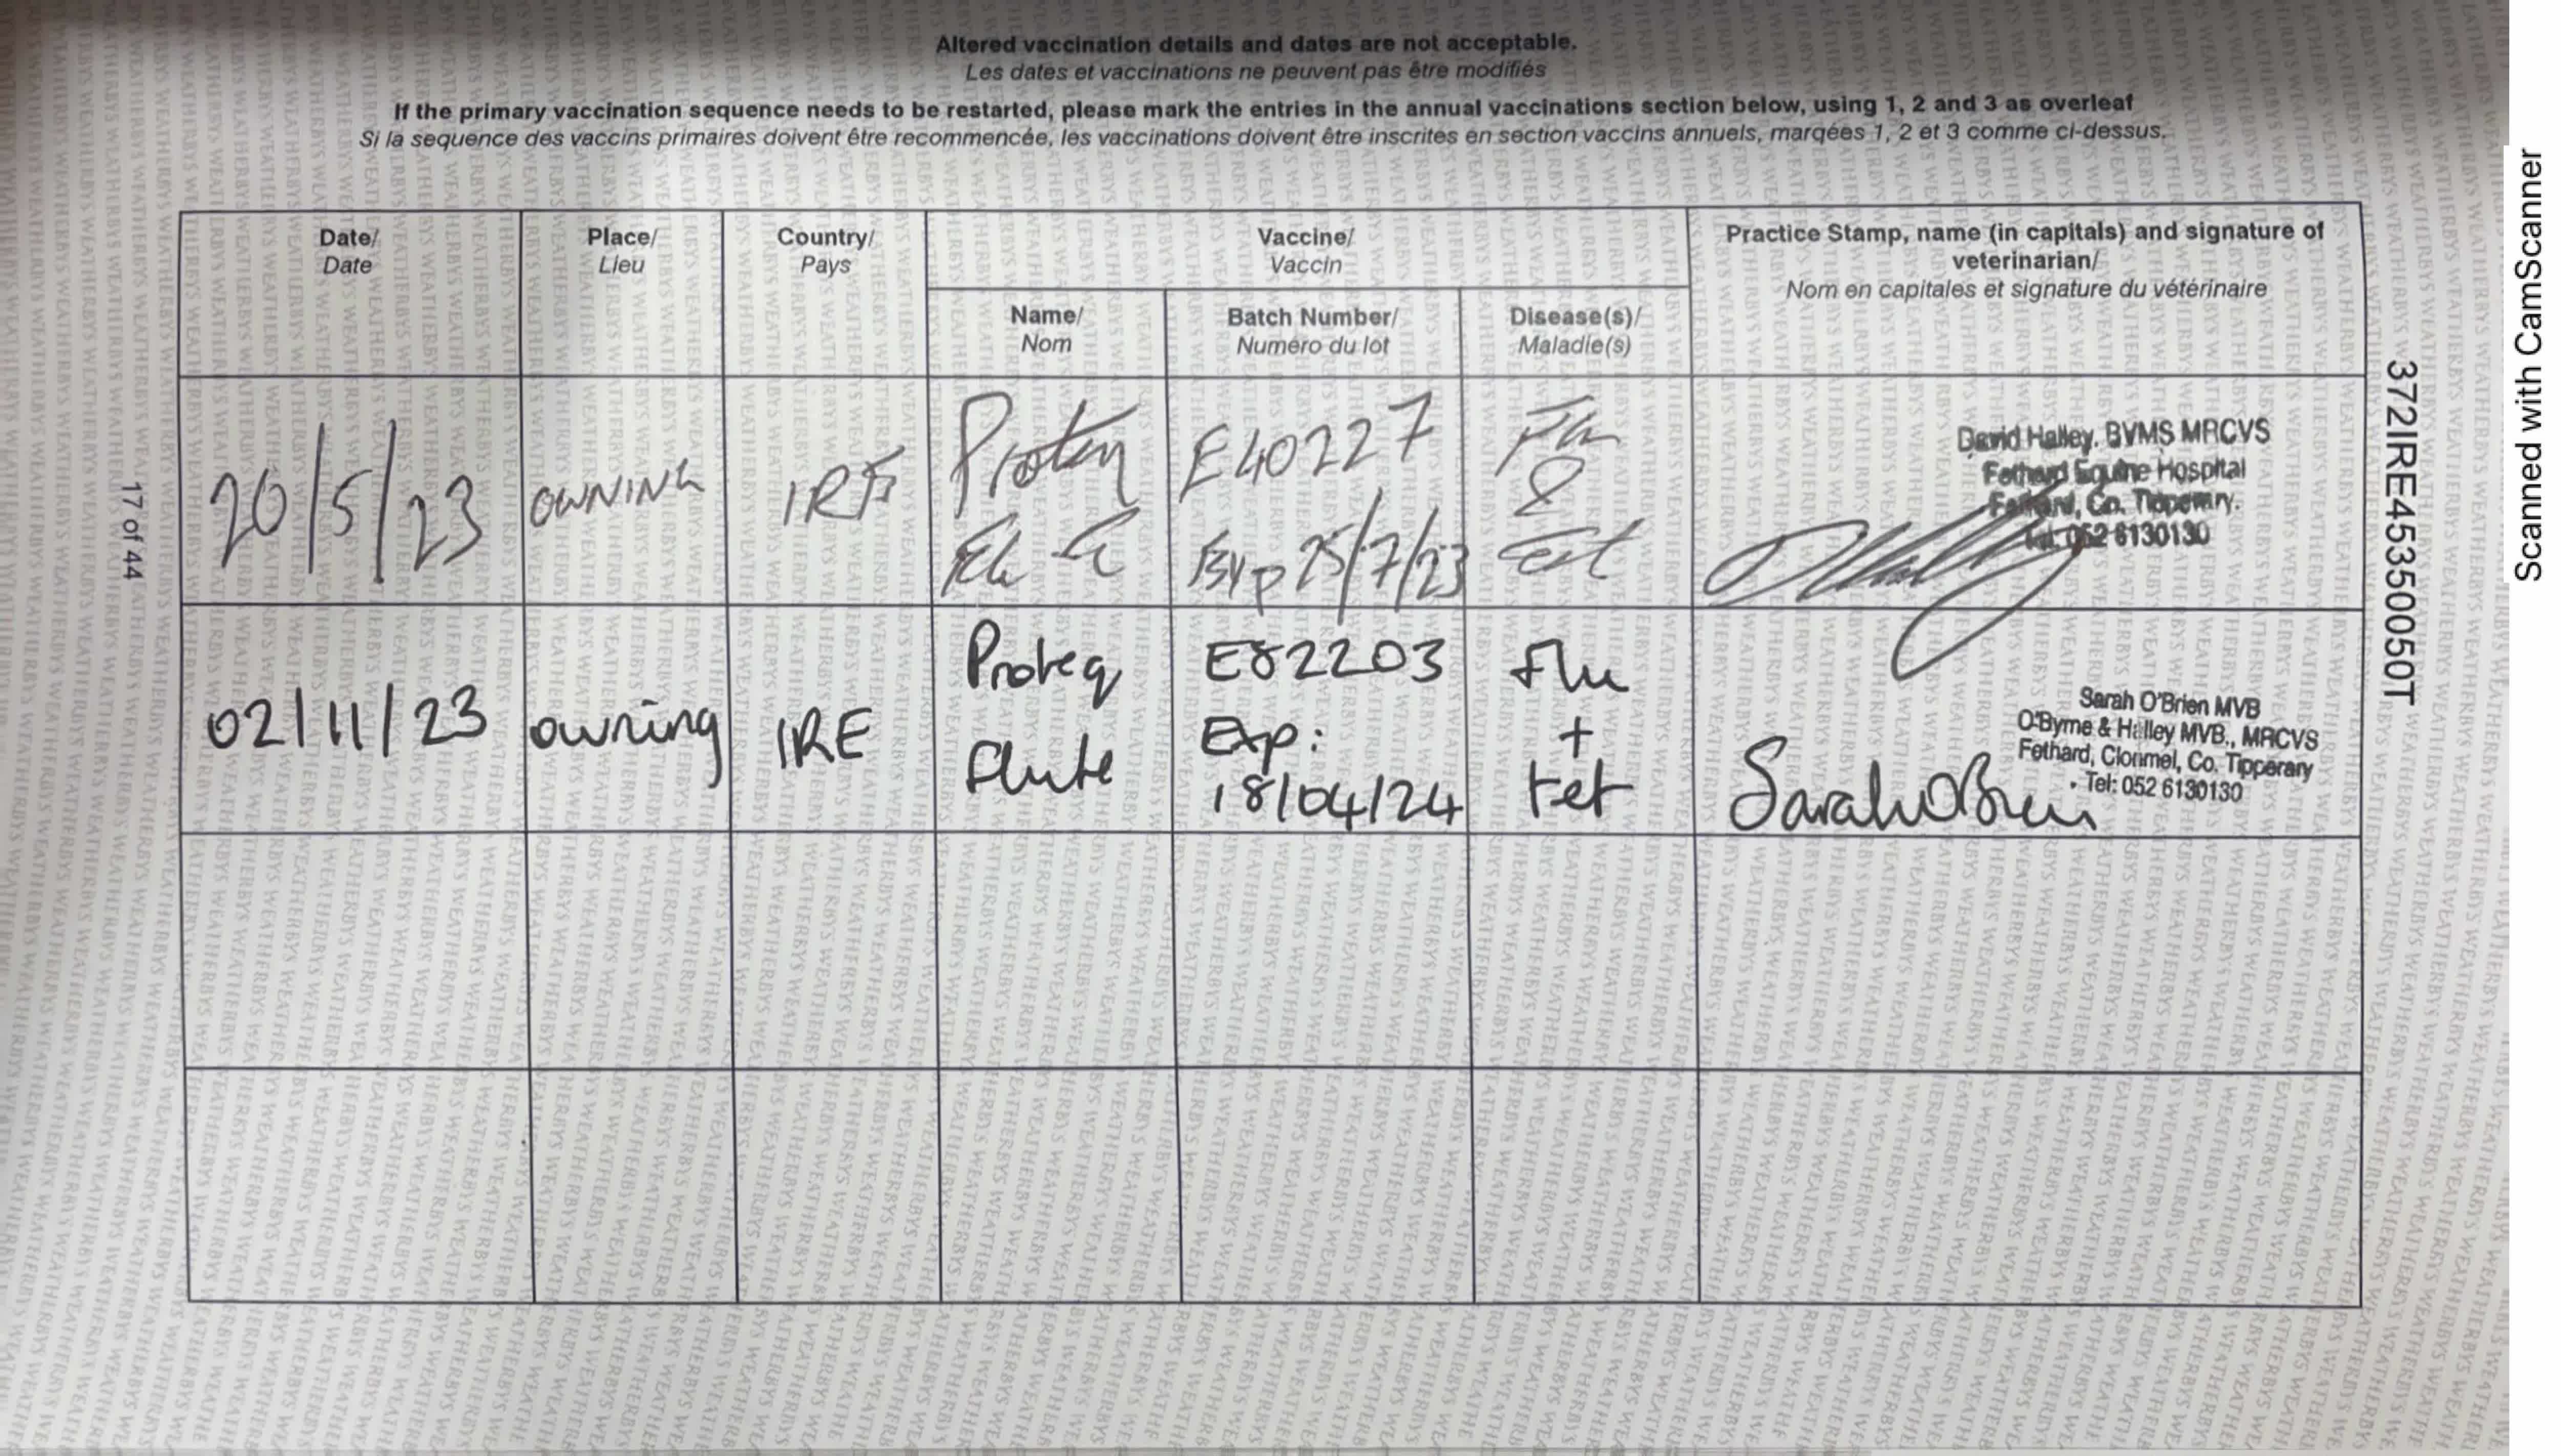 Altered vaccination details and dates are not acceptable.
Les dates et vaccinations ne peuvent pas être modifiés
If the primary vaccination sequence needs to be restarted, please mark the entries in the annual vaccinations section below, using 1, 2 and 3 as overleaf
Si la sequence des vaccins primaires doivent être recommencée, les vaccinations doivent être inscrites en section vaccins annuels, marqées 1, 2 et 3 comme ci-dessus.
Date/
Date
Place/
Lieu
Country/
Pays
Vaccine/
Vaccin
Name/
Nom
Batch Number/
Numéro du lot
Disease(s)/
Maladie(s)
Practice Stamp, name (in capitals) and signature of
veterinarian/
Nom en capitales et signature du vétérinaire
20/5/23
OWNING
IRE
E40227
Exp 25/7/23
David Halley, BVMS MRCVS
Fethard Equine Hospital
Fethard, Co. Tipperary.
Tel: 052 6130130
02/11/23
owning
IRE
Proteq
Flute
E82203
Exp:
18/04/24
Flu
+
tet
Sarah O'Brien MVB
O'Byrne & Halley MVB., MRCVS
Fethard, Clonmel, Co. Tipperary
Tel: 052 6130130
Sarah O'Brien
17 of 44
372IRE45350050T
Scanned with CamScanner